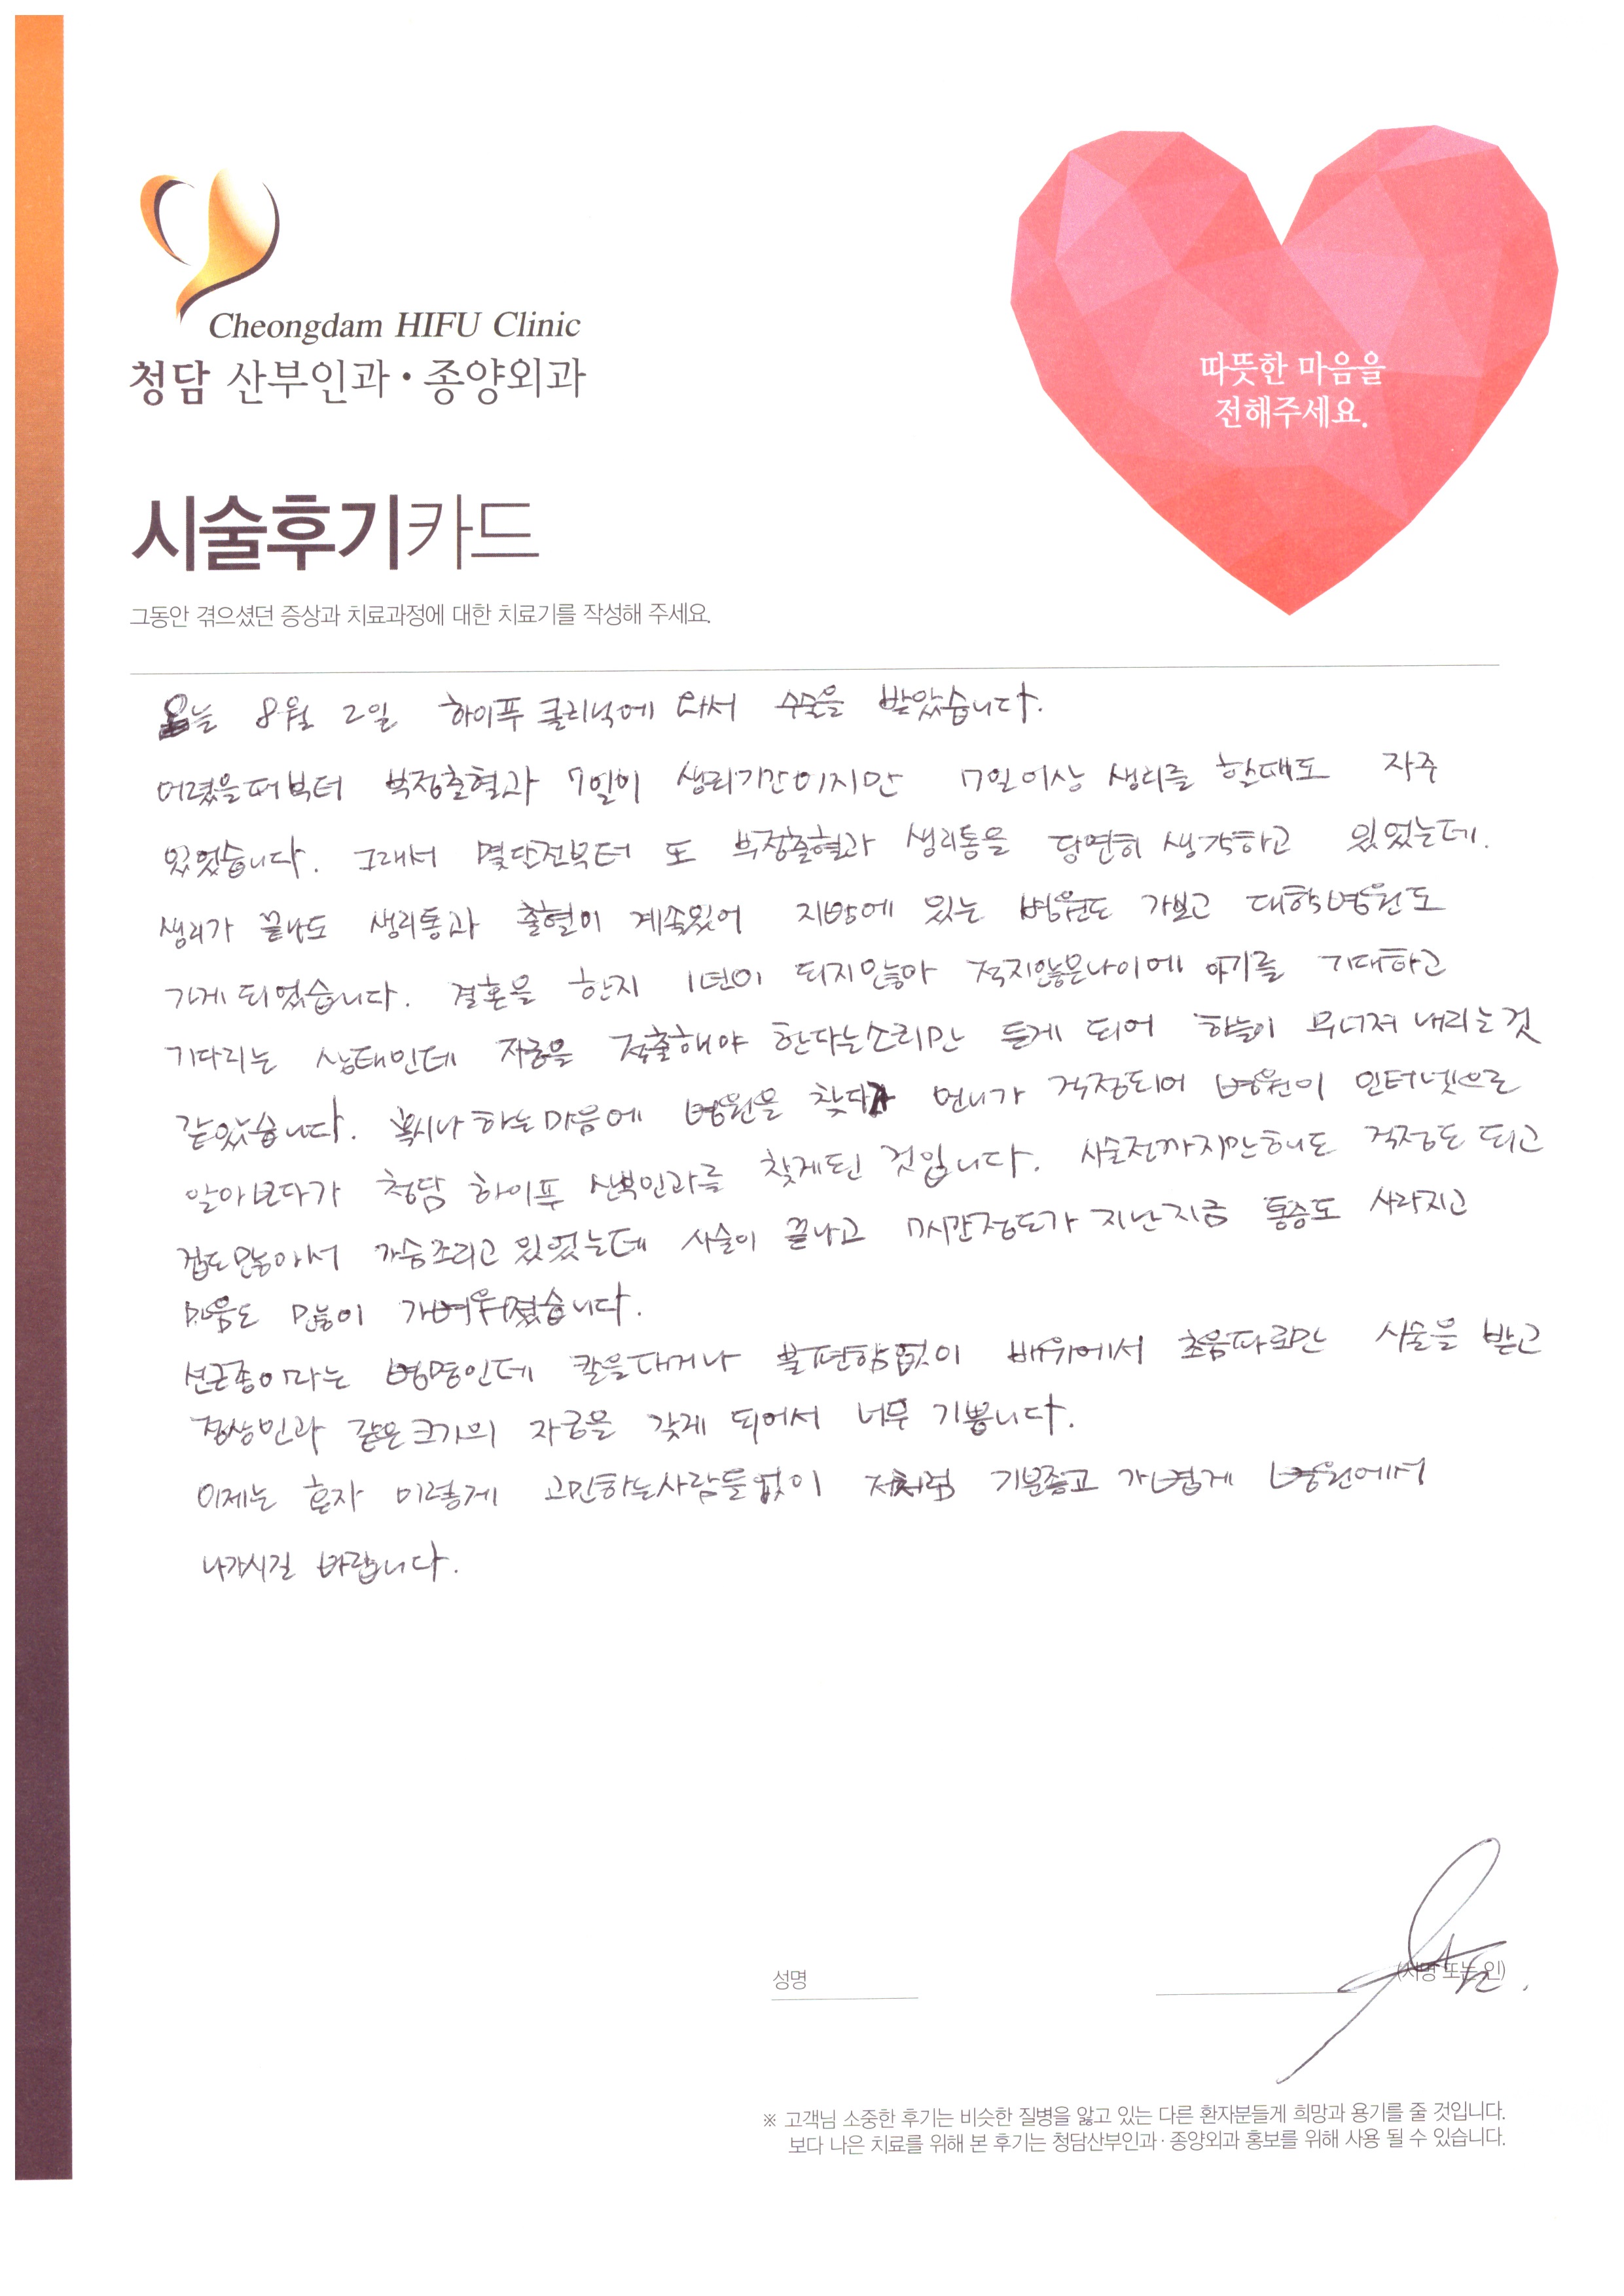 Cheongdam HIFU Clinic
청담 산부인과·종양외과
따뜻한 마음을
전해주세요.
시술후기카드
그동안 겪으셨던 증상과 치료과정에 대한 치료기를 작성해 주세요.
오늘 8월 2일 하이푸 클리닉에 와서 수술을 받았습니다.
어렸을때부터 부정출혈과 7일이 생리기간이지만 17일이상 생리를 할때도 자주
있었습니다. 그래서 몇달전부터 또 부정출혈과 생리통을 당연히 생각하고 있었는데.
생리가 끝나도 생리통과 출혈이 계속있어 지방에 있는 병원도 가보고 대학병원도
가게 되었습니다. 결혼을 한지 1년이 되지않아 적지않은나이에 아기를 기대하고
기다리는 상태인데 자궁을 적출해야 한다는소리만 듣게 되어 하늘이 무너져 내리는것
같았습니다. 혹시나 하는마음에 병원을 찾다가 언니가 걱정되어 병원이 인터넷으로
알아보다가 청담 하이푸 산부인과를 찾게된 것입니다. 시술전까지만해도 걱정도 되고
겁도많아서 가슴조리고 있었는데 시술이 끝나고 1시간정도가 지난지금 통증도 사라지고
마음도 많이 가벼워졌습니다.
선근종이라는 병명인데 칼을대거나 불편함없이 배위에서 초음파로만 시술을 받고
정상인과 같은크기의 자궁을 갖게 되어서 너무 기쁩니다.
이제는 혼자 이렇게 고민하는사람들없이 저처럼 기분좋고 가볍게 병원에서
나가시길 바랍니다.
성명
(서명 또는 인)
※ 고객님 소중한 후기는 비슷한 질병을 앓고 있는 다른 환자분들게 희망과 용기를 줄 것입니다.
보다 나은 치료를 위해 본 후기는 청담산부인과·종양외과 홍보를 위해 사용 될 수 있습니다.